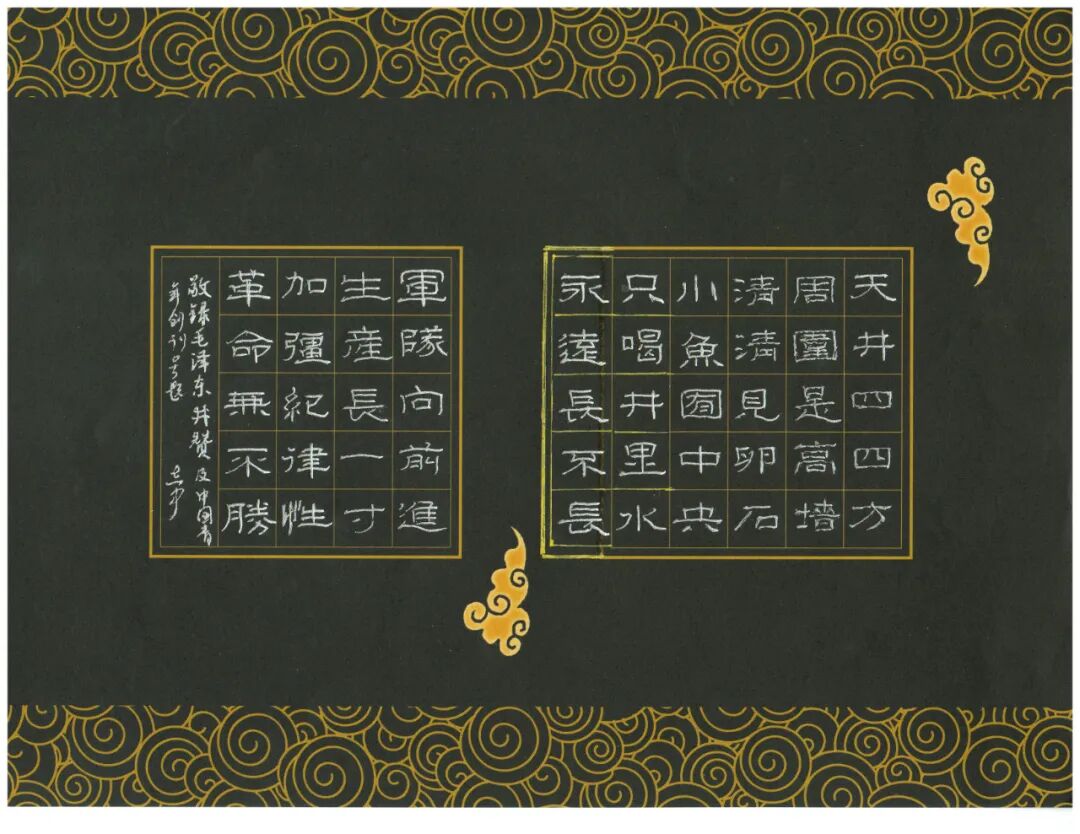 天井四四方
周圍是高墻
清清見卵石
小魚囿中央
只喝井里水
永遠長不長
軍隊向前進
生産長一寸
加彊紀律性
革命無不勝
敬録毛泽东井赞及中国青
年创刊号题